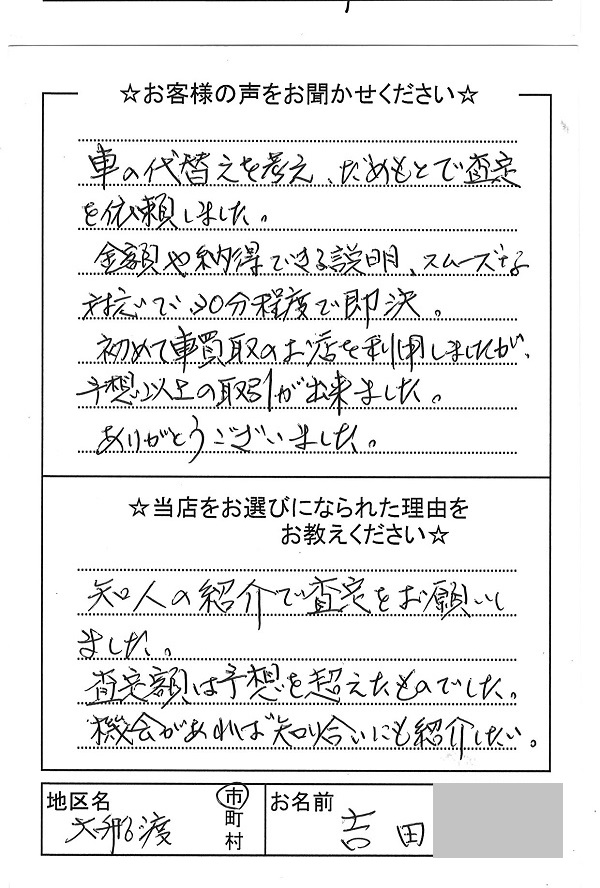 ☆お客様の声をお聞かせください☆
車の代替えを考え、だめもとで査定
を依頼しました。
金額や納得できる説明、スムーズな
対応で、30分程度で即決。
初めて車買取のお店を利用しましたが、
予想以上の取引が出来ました。
ありがとうございました。
☆当店をお選びになられた理由を
お教えください☆
知人の紹介で査定をお願いし
ました。
査定額は予想を超えたものでした。
機会があれば知り合いにも紹介したい。
地区名
市
町
村
お名前
吉田